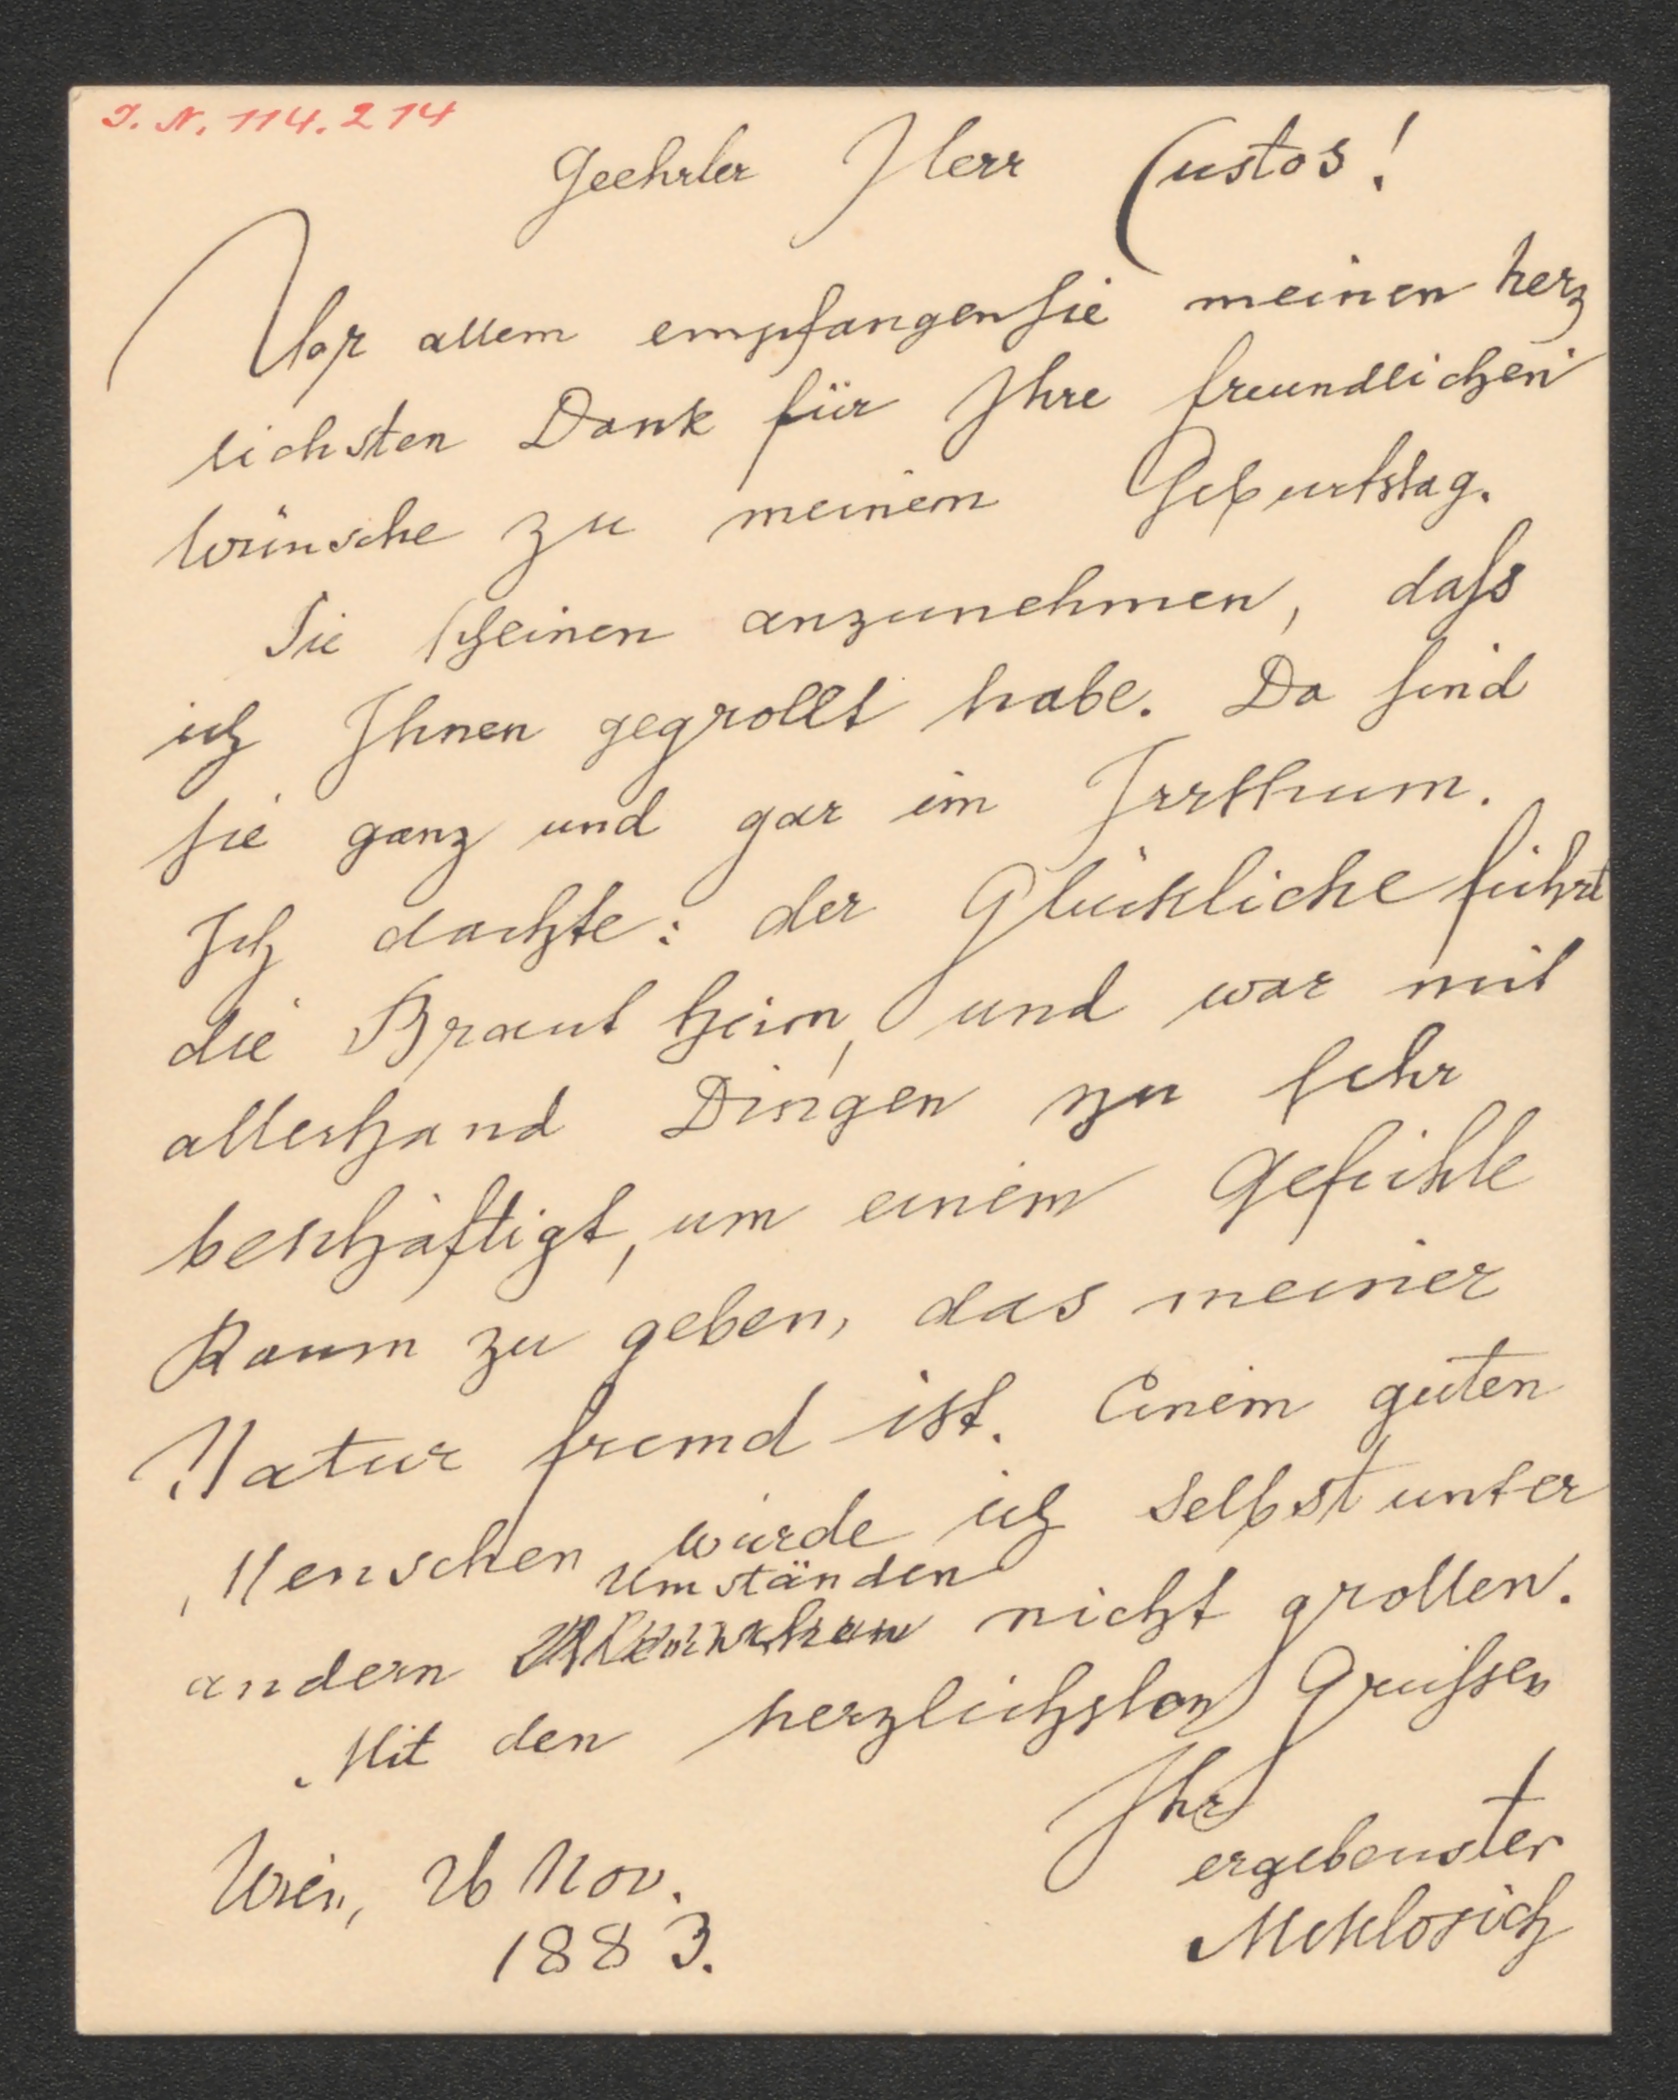 I. N. 114.214
Geehrter Herr Custos!
Vor allem empfangen Sie meinen herz
lichsten Dank für Ihre freundlichen
Wünsche zu meinem Geburtstag.
Sie scheinen anzunehmen, dass
ich Ihnen gegrollt habe. Da sind
sie ganz und gar im Irrthum.
Ich dachte: der Glückliche führt
die Braut heim, und war mit
allerhand Dingen zu sehr
beschäftigt, um einem Gefühle
Raum zu geben, das meiner
Natur fremd ist. Einem guten
Menschen würde ich selbst unter
Umständen
andern nicht grollen.
Mit den herzlichsten Grüssen
Ihr
ergebenster
Miklosich
Wien, 26 Nov.
1883.